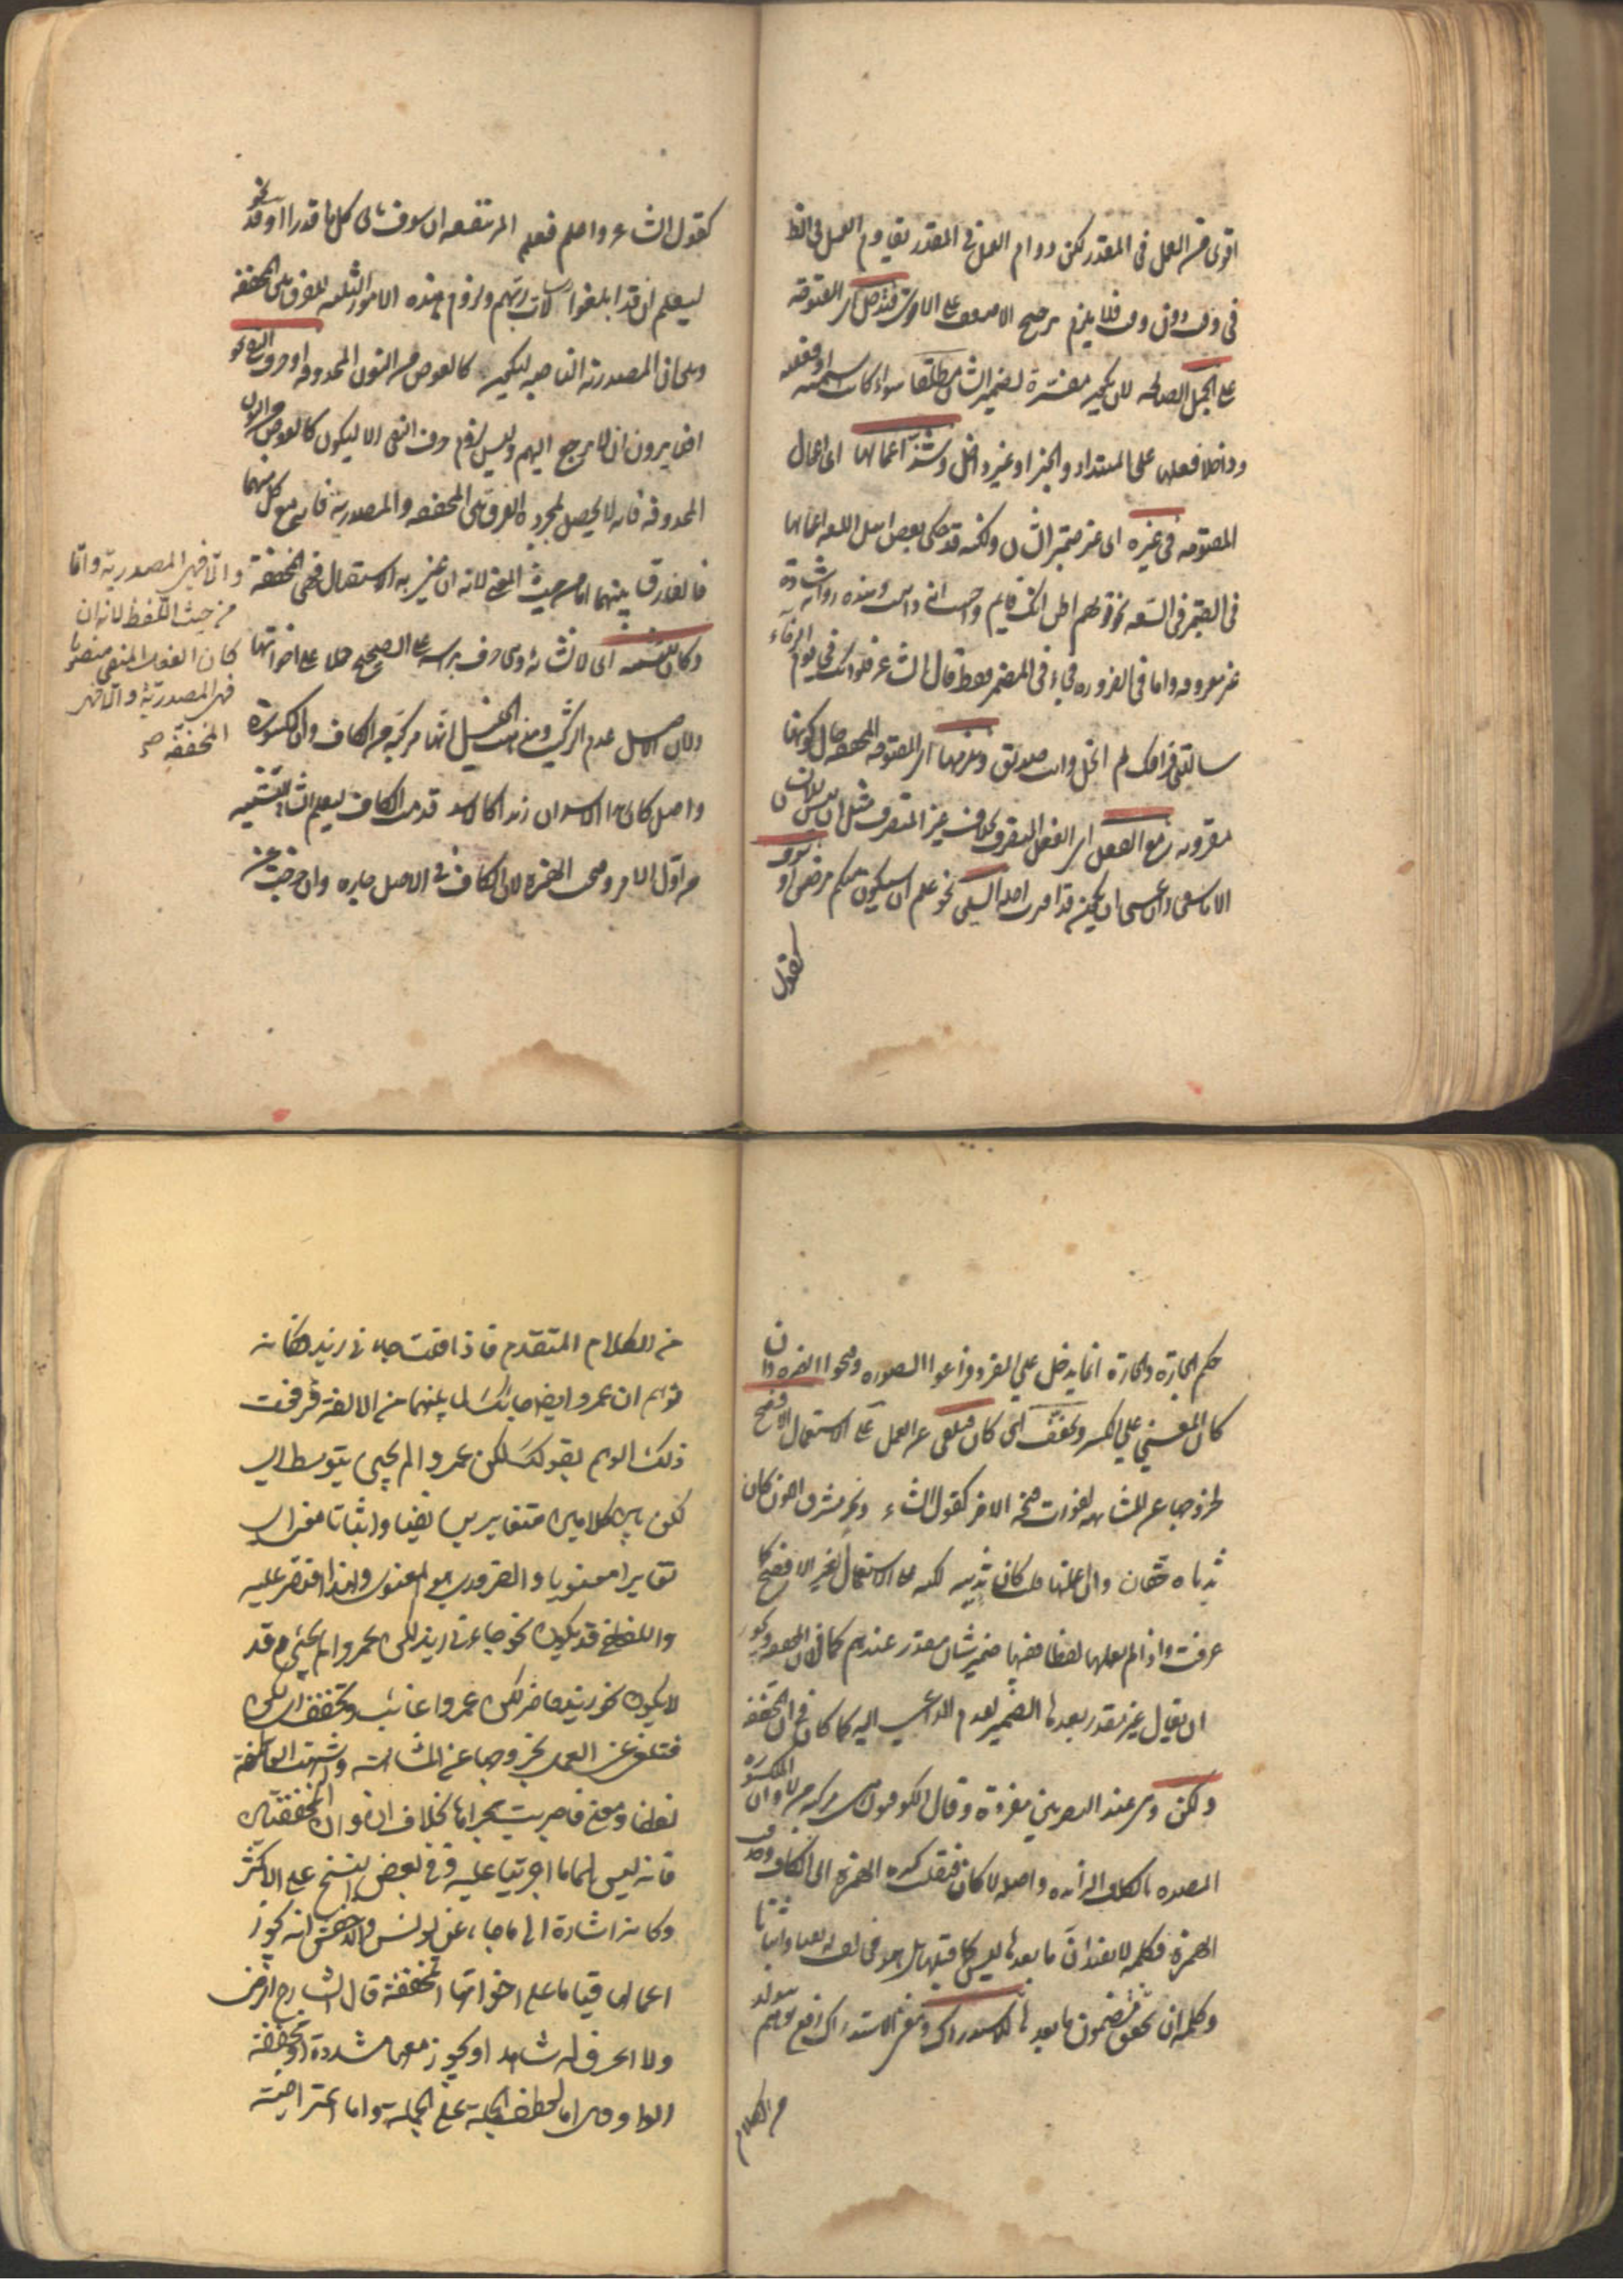 اقوى من العمل فى المقدر لكن دوام العمل فى المقدر يقاوم العمل فى الملفوظ
فى وقت دون وقت فلا يلزم ترجيح الاضعف على الاقوى فتدخل اى المفتوحة
على الجمل الصالحة لان يكون مفسرة لضمير الشان مطلقا سواء كانت اسمية او فعلية
وداخلا فعلها على المبتدا والخبر او غير داخل وشذ اعمالها اى اعمال
المفتوحة فى غيره اى غير ضمير الشان ولكنه قد حكى بعض اهل اللغة اعمالها
فى المضمر فى السعة نحو قولهم اظن انك قايم واحسب انه ذاهب وهذه رواية شاذة
غير معروفة واما فى الضرورة فجاء فى المضمر فقط قال الشاعر فلو انك فى يوم الرخاء
سالتنى فراقك لم ابخل وانت صديق ويلزمها اى المفتوحة المخففة حال كونها
مقرونة مع الفعل اى الفعل المتصرف بخلاف غير المتصرف مثل ان ليس للانسان
الا ما سعى وان عسى ان يكون قد اقترب اجلهم السين نحو علم ان سيكون منكم مرضى او سوف
كقول
كقول الشاعر واعلم فعلم المرء ينفعه ان سوف ياتى كل ما قدرا او قد نحو
ليعلم ان قد ابلغوا رسالات ربهم ولزوم هذه الامور الثلثة للفرق بين المخففة
وبين ان المصدرية الناصبة ليكون كالعوض من النون المحذوفة او حرف النفى نحو
افلا يرون ان لا يرجع اليهم وليس لزوم حرف النفى الا ليكون كالعوض من النون
المحذوفة فانه لا يحصل بمجرده الفرق بين المخففة والمصدرية فانه يجتمع مع كل منهما
فالفارق بينهما اما من حيث المعنى لانه ان عنى به الاستقبال فهى المخففة
والا فهى المصدرية واما
من حيث اللفظ لانه ان
كان الفعل المنفى منصوبا
فهى المصدرية والا فهى
المخففة صح
وكان للتشبيه اى لانشائه وهى حرف براسه على الصحيح حملا على اخواتها
ولان الاصل عدم التركيب ومذهب الخليل انها مركبة من الكاف وان المكسورة
واصل كان زيدا الاسد ان زيدا كالاسد قدمت الكاف ليعلم انشاء التشبيه
من اول الامر وفتحت الهمزة لان الكاف فى الاصل جارة وان خرجت عن
حكم الجارة والجارة انما يدخل على المفرد فراعوا الصورة وفتحوا الهمزة وان
كان المعنى على الكسر وتخفف اى كان فتلغى عن العمل على الاستعمال الافصح
لخروجها عن المشابهة لفوات فتحة الاخر كقول الشاعر ونحر مشرق اللون كان
ثدياه حقان وان اعملتها قلت كان ثدييه لكنه على الاستعمال الغير الافصح كما
عرفت واذا لم تعملها لفظا ففيها ضمير شان مقدر عندهم كما فى ان المخففة ويجوز
ان يقال غير مقدر بعدها الضمير لعدم الداعى اليه كما كان فى ان المخففة
ولكن وهى عند البصريين مفردة وقال الكوفيون هى مركبة من لا وان المكسورة
المصدرة بالكاف الزائدة واصله لا كان فنقلت كسرة الهمزة الى الكاف وحذفت
الهمزة فكلمة لا تفيد ان ما بعدها ليس كما قبلها بل هو مخالف له نفيا واثباتا
وكلمة ان تحقق مضمون ما بعدها للاستدراك ومعنى الاستدراك رفع توهم يتولد
من الكلام
من الكلام المتقدم فاذا قلت جاءنى زيد فكانه
توهم ان عمروا ايضا جاءك لما بينهما من الالفة فرفعت
ذلك الوهم بقولك لكن عمروا لم يجئ يتوسط اى
لكن بين كلامين متغايرين نفيا واثباتا معنى اى
تغايرا معنويا والضرورى هو المعنوى ولهذا اقتصر عليه
واللفظى قد يكون نحو جاءنى زيد لكن عمروا لم يجئ وقد
لا يكون نحو زيد حاضر لكن عمروا غائب وتخفف اى لكن
فتلغى عن العمل لخروجها عن المشابهة واشبهت العاطفة
لفظا ومعنى فاجريت مجراها بخلاف ان وان المخففتين
فانه ليس لهما ما اجريتا عليه وفى بعض النسخ على الاكثر
وكانه اشارة الى ما جاء عن يونس والاخفش انه يجوز
اعمالها قياسا على اخواتها المخففة قال الشارح الرضى
ولا اعرف له شاهدا ويجوز معها مشددة او مخففة
الواو وهى اما لعطف الجملة على الجملة واما اعتراضية